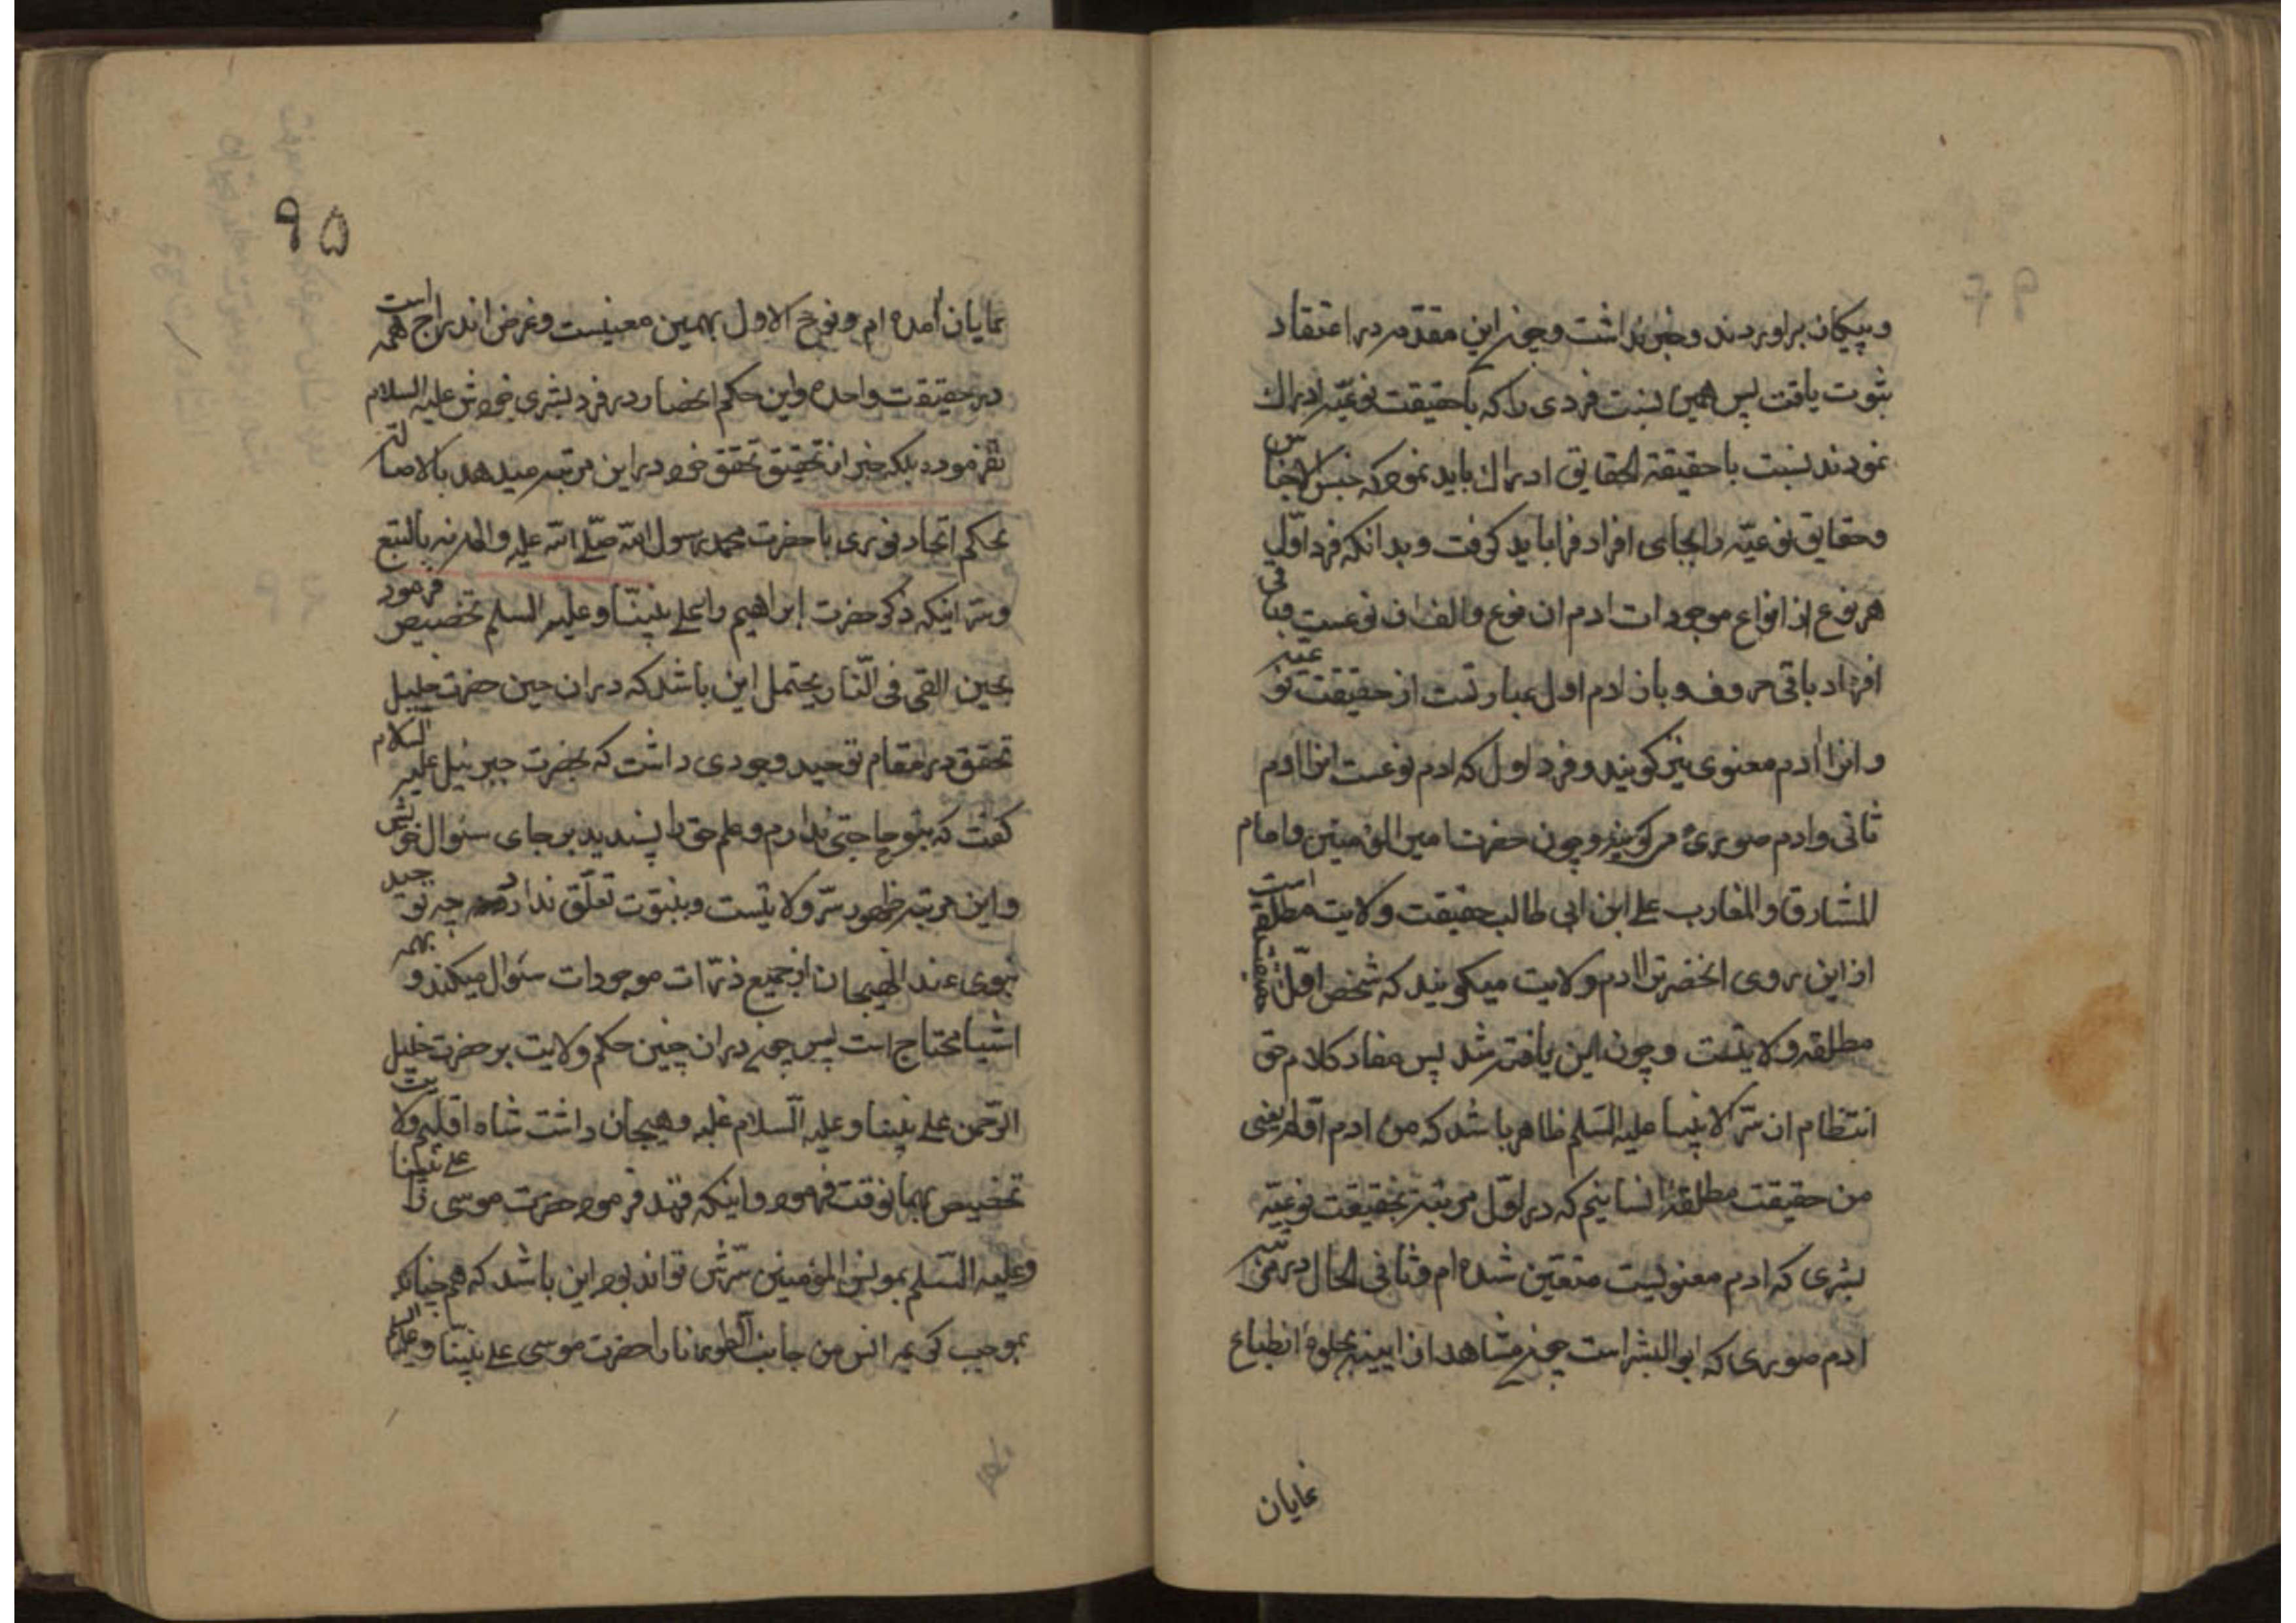 وپیکان براوردند وخبر نداشت وچون این مقدمه در اعتقاد
ثبوت یافت پس همین نسبت فردی را که باحقیقت نوعیّه ادراک
نمودند نسبت باحقیقة الحقایق ادراک باید نمود که جنس الاجناس
وحقایق نوعیّه را بجای افراد فرا باید کرفت وبدانکه فرد اوّل
هر نوع از انواع موجودات ادم ان نوع والف ان نوعست وباقی
افراد باقی حروف وباز ادم اول عبارتست از حقیقت نوعیّه
وانرا ادم معنوی نیز کویند وفرد اول که ادم نوعست انرا ادم
ثانی وادم صوری می کویند وچون حضرت امیرالمؤمنین وامام
المشارق والمغارب علی ابن ابی طالب حقیقت ولایت مطلقه است
از این روی انحضرترا ادم ولایت میکویند که شخص اوّل حقیقت
مطلقه ولایتست وچون این یافته شد پس مفاد کلام حق
انتظام ان سرّ الانبیا علیه السّلم ظاهر باشد که من ادم اوّلم یعنی
من حقیقت مطلقهٔ انسانیم که در اوّل مرتبه بحقیقت نوعیّه
بشری که ادم معنویست متعیّن شده ام وثانی الحال در مرتبه
ادم صوری که ابو البشر است چون مشاهد از ایینه بجلوهٔ انطباع
نمایان
۹۵
نمایان امده ام ونوح الاول بهمین معنیست وغرض اندراج همه است
در حقیقت واحده واین حکم انحصار در فرد بشری خودش علیه السلام
نفرموده بلکه خبر از تحقیق تحقق خود در این مرتبه میدهد بالاصاله
بحکم اتحاد نوری با حضرت محمد رسول الله صلّی الله علیه واله نه بالتبع
وسرّ اینکه ذکر حضرت ابراهیم را علی نبیّنا وعلیه السلم تخصیص فرمود
بحین القی فی النّار یحتمل این باشد که در ان حین حضرت خلیل
تحقق در مقام توحید وجودی داشت که بحضرت جبرئیل علیه السلام
کفت که بتو حاجتی ندارم وعلم حق را پسندید بر جای سئوال خویش
واین مرتبه ظهور سرّ ولایتست وبنبوّت تعلّق ندارد چه توحید
نبوی عند الهیجان از جمیع ذرّات موجودات سئوال میکند وبهمه
اشیا محتاج است پس چون در ان چنین حکم ولایت بر حضرت خلیل
الرّحمن علی نبینا وعلیه السّلام غلبه وهیجان داشت شاه اقلیم ولایت
تخصیص بهمانوقت فرمود واینکه فرمود حضرت موسی را علی نبینا
وعلیه السّلم بمونس المؤمنین سرّش تواند بود این باشد که همچنانکه
بموجب کریمه انس من جانب الطور نارا حضرت موسی علی نبیّنا وعلیه السلام